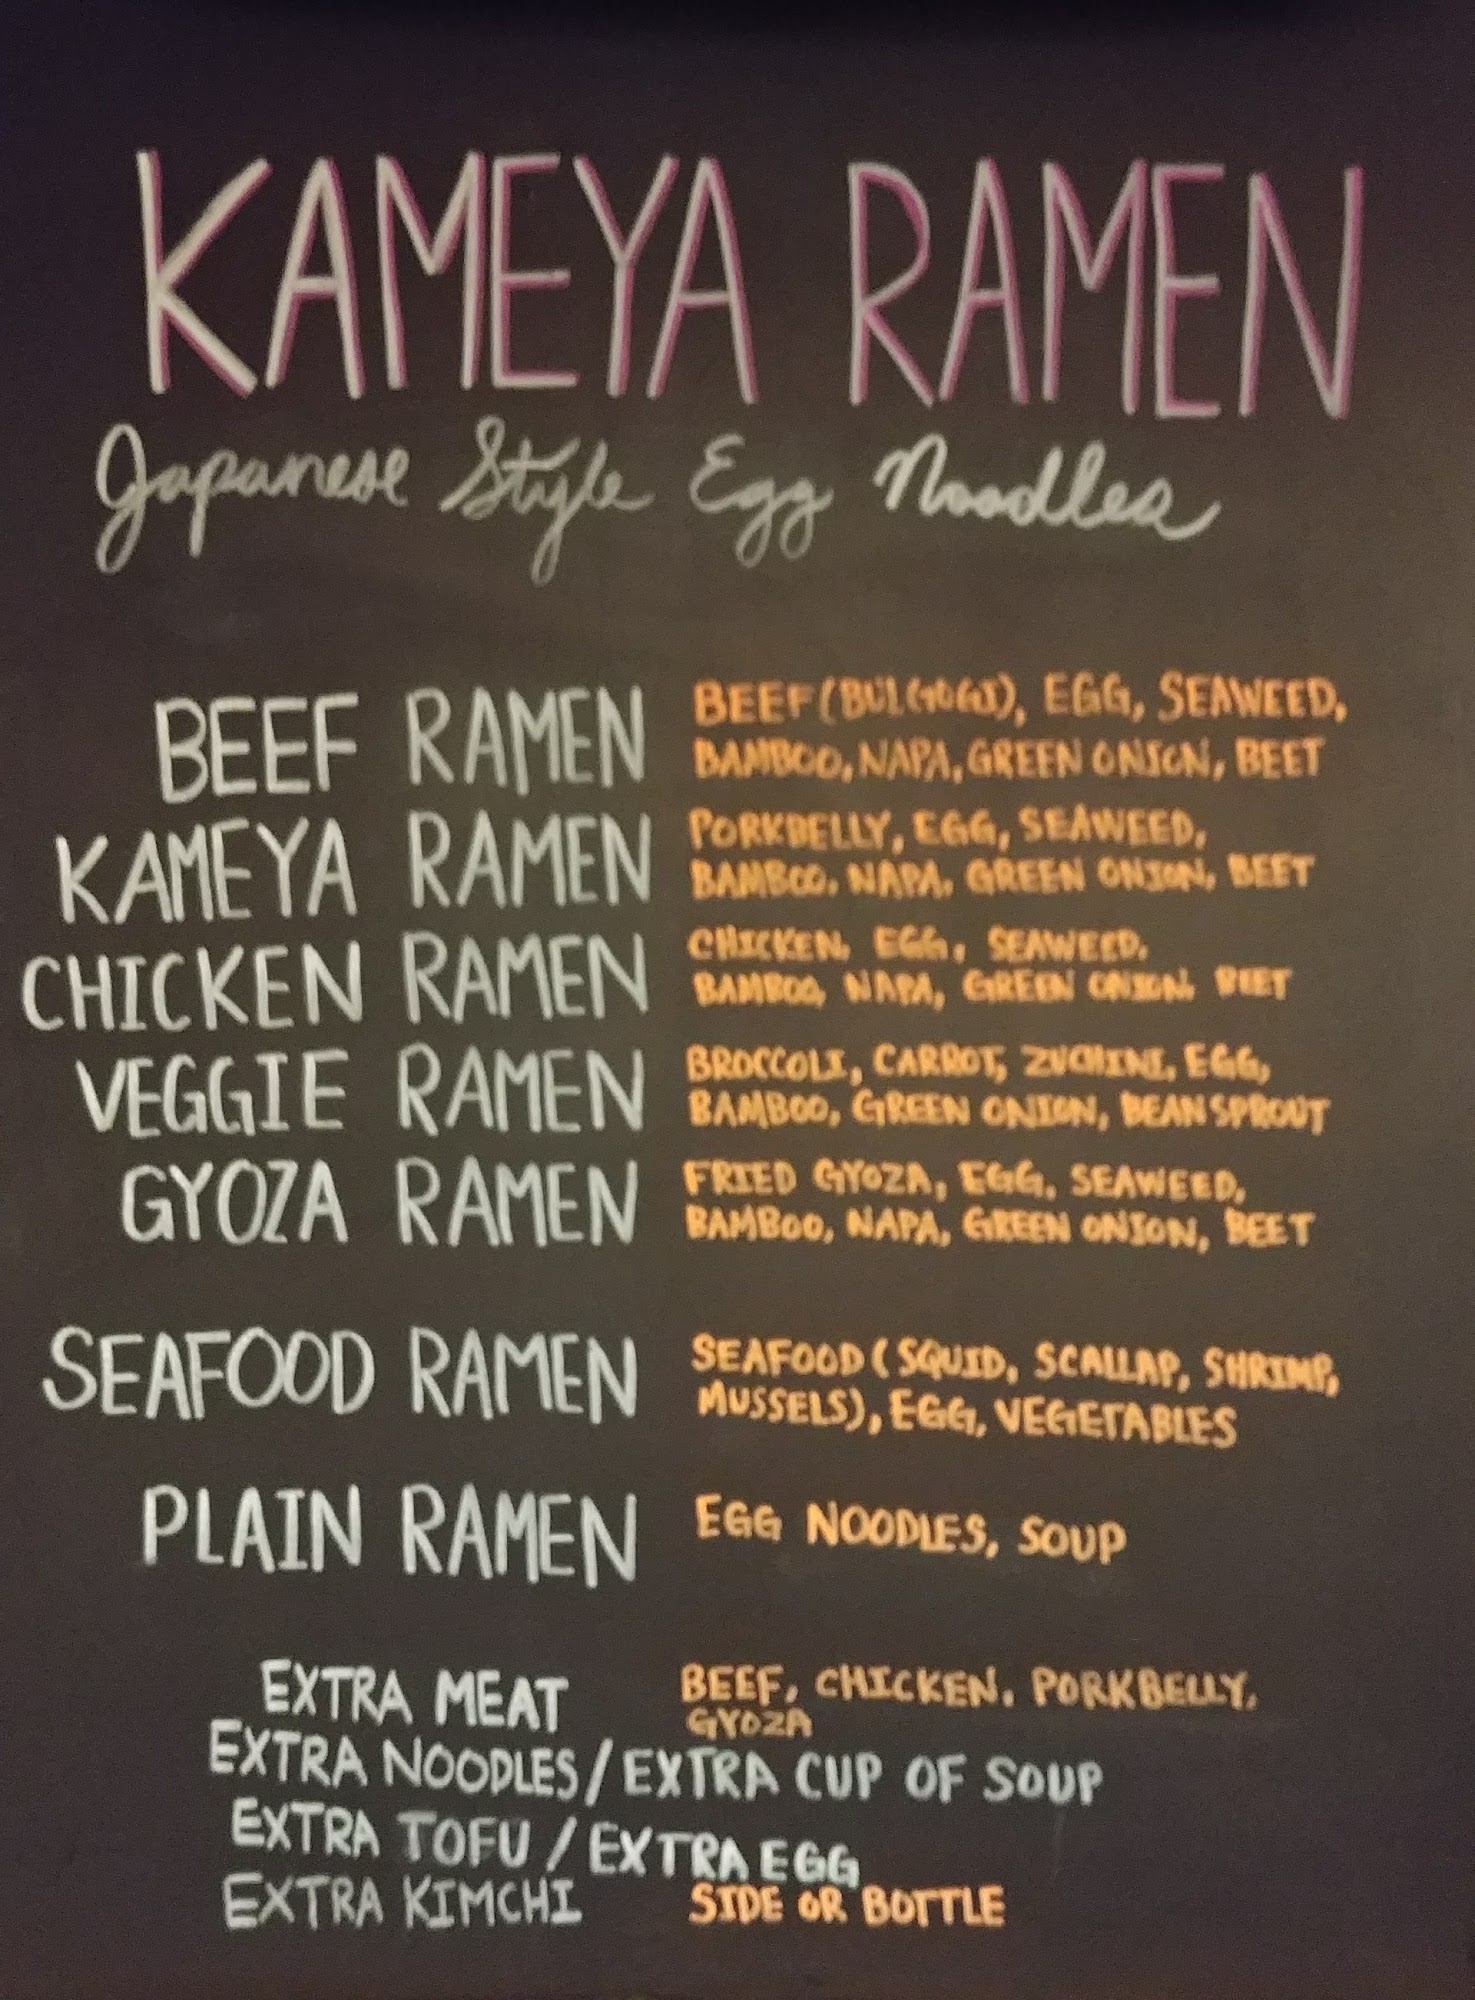 KAMEYA RAMEN
Japanese Style Egg Noodles
BEEF RAMEN
BEEF (BULGOGI), EGG, SEAWEED,
BAMBOO, NAPA, GREEN ONION, BEET
KAMEYA RAMEN
PORKBELLY, EGG, SEAWEED,
BAMBOO, NAPA, GREEN ONION, BEET
CHICKEN RAMEN
CHICKEN, EGG, SEAWEED,
BAMBOO, NAPA, GREEN ONION, BEET
VEGGIE RAMEN
BROCCOLI, CARROT, ZUCHINI, EGG,
BAMBOO, GREEN ONION, BEAN SPROUT
GYOZA RAMEN
FRIED GYOZA, EGG, SEAWEED,
BAMBOO, NAPA, GREEN ONION, BEET
SEAFOOD RAMEN
SEAFOOD (SQUID, SCALLAP, SHRIMP,
MUSSELS), EGG, VEGETABLES
PLAIN RAMEN
EGG NOODLES, SOUP
EXTRA MEAT
BEEF, CHICKEN, PORKBELLY,
GYOZA
EXTRA NOODLES / EXTRA CUP OF SOUP
EXTRA TOFU / EXTRA EGG
EXTRA KIMCHI SIDE OR BOTTLE